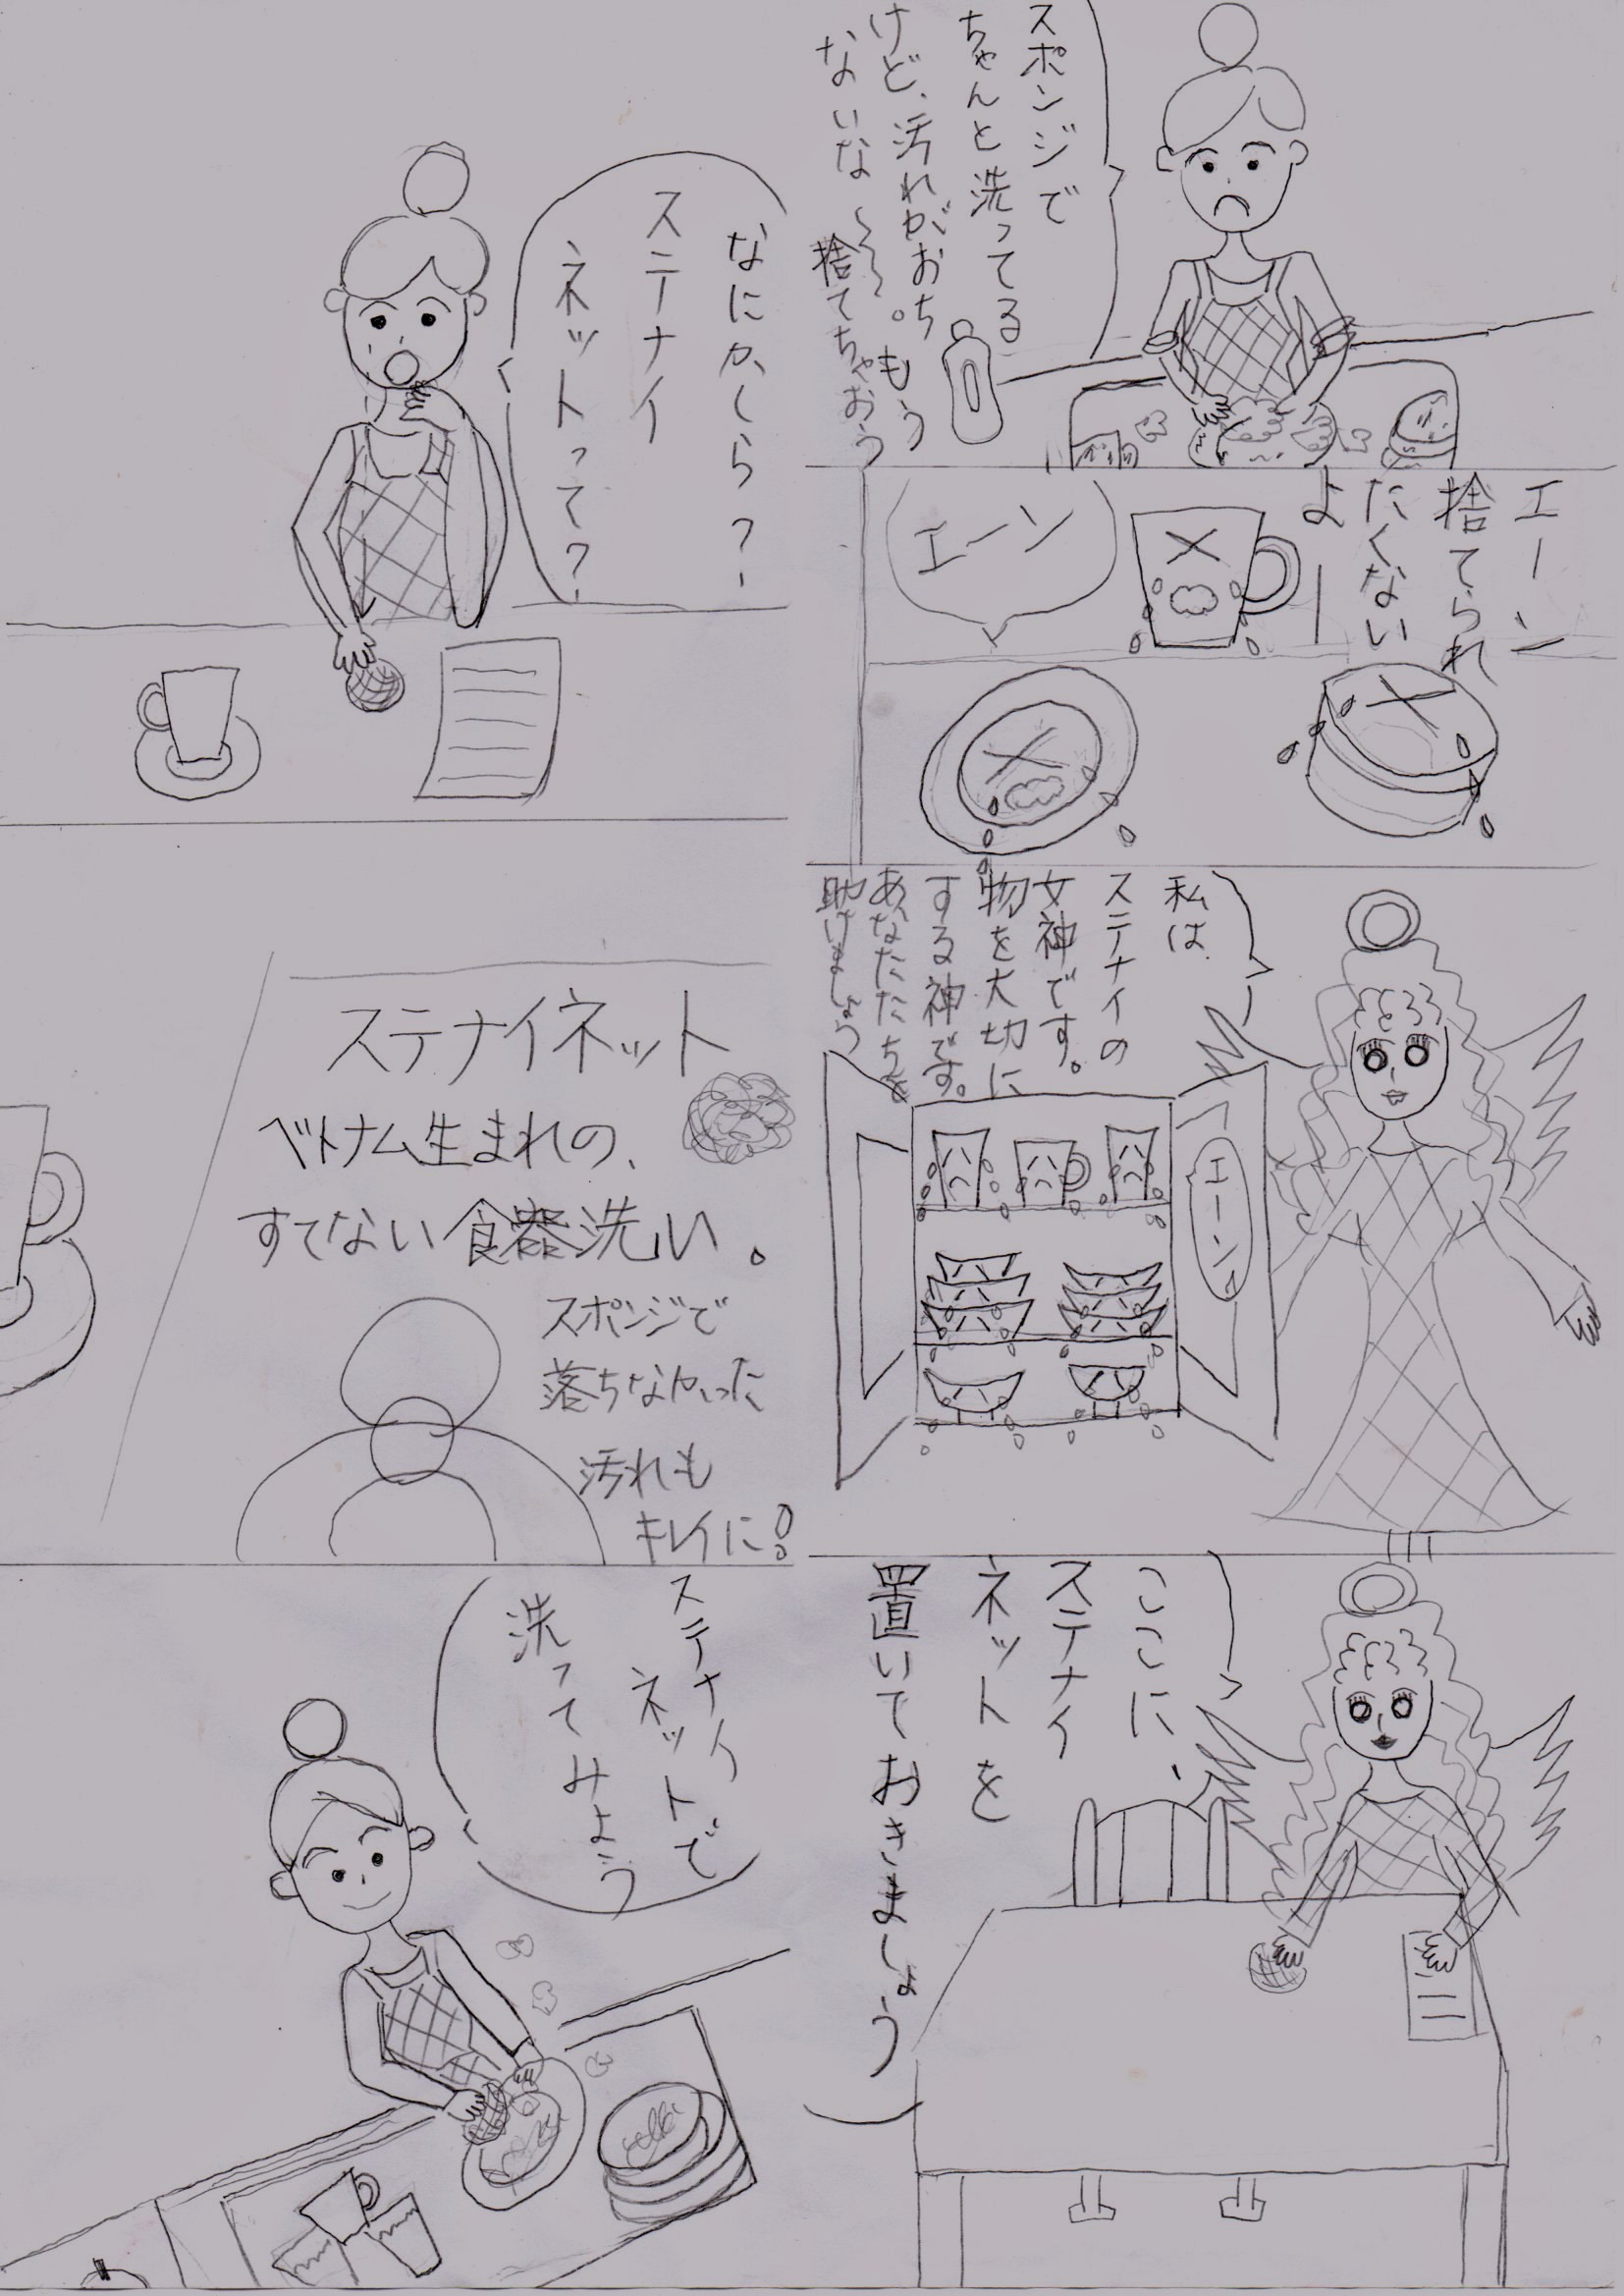 スポンジで
ちゃんと洗ってる
けど、汚れがおち
ないな〜〜〜。もう
捨てちゃおう
エーン
捨てられ
たくない
よ
エーン
私は
ステナイの
女神です。
物を大切に
する神です。
あなたたちを
助けましょう
エーン
ここに、
ステナイ
ネットを
置いておきましょう
なにかしら?
ステナイ
ネットって?
ステナイネット
ベトナム生まれの、
すてない食器洗い。
スポンジで
落ちなかった
汚れも
キレイに!
ステナイ
ネットで
洗ってみよう